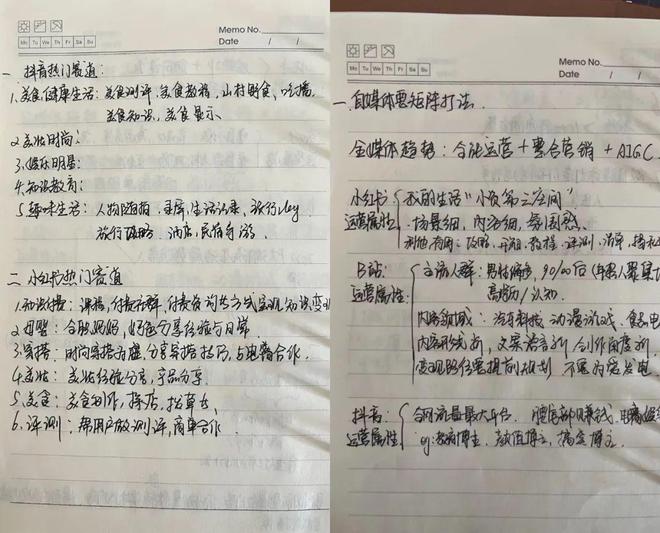 Memo No.
Mo Tu We Th Fr Sa Su
Date / /
一 抖音热门赛道:
1.美食健康生活: 美食测评.美食教程,山村野食、吃播
美食知识、美食展示、
2.美妆时尚:
3.娱乐明星:
4.知识教育:
5.趣味生活: 人物,生活记录、旅行vlog
旅行攻略、酒店,民宿
二 小红书热门赛道
1.知识付费: 课程,付费社群,付费咨询等方式实现知识变现
2.母婴: 妈妈,分享经验与日常.
3.穿搭: 时尚穿搭,分享穿搭技巧,与电商合作.
4.美妆: 美妆经验分享,产品分享.
5.美食: 美食制作,探店,
6.评测: 帮用户做测评,商单合作.
Memo No.
Mo Tu We Th Fr Sa Su
Date / /
一.自媒体要矩阵打法.
全媒体趋势: 全能运营+整合营销+AIGC.
小红书 我的生活"小资第三空间"
运营属性 场景细,内容细,氛围感.
利他有用: 攻略、开箱、教程、评测、清单、
B站: 主流人群: 男性偏多,90/00后
运营属性: 高知/认知.
内容领域: 汽车科技 动漫游戏、食品
内容形式新,文案语言新 创作角度新.
变现路径要提前规划 不要为爱发电.
抖音: 全网流量最大平台. 腰尾部难赚钱.
运营属性 eg:教育博主、颜值博主、搞笑博主.